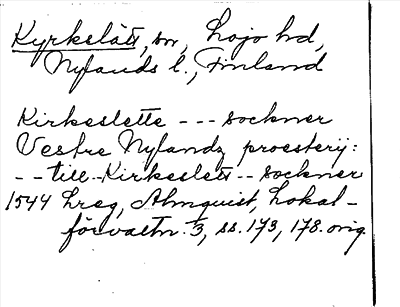 Kyrkslätt, sn, Lojo hd,
Nylands l., Finland
Kirkeslette --- sockner
Vestre Nylandz proesterij:
-- till Kirkeslett -- sockner
1544 Lreg, Almquist, Lokal-
förvaltn. 3, ss. 173, 178. orig.